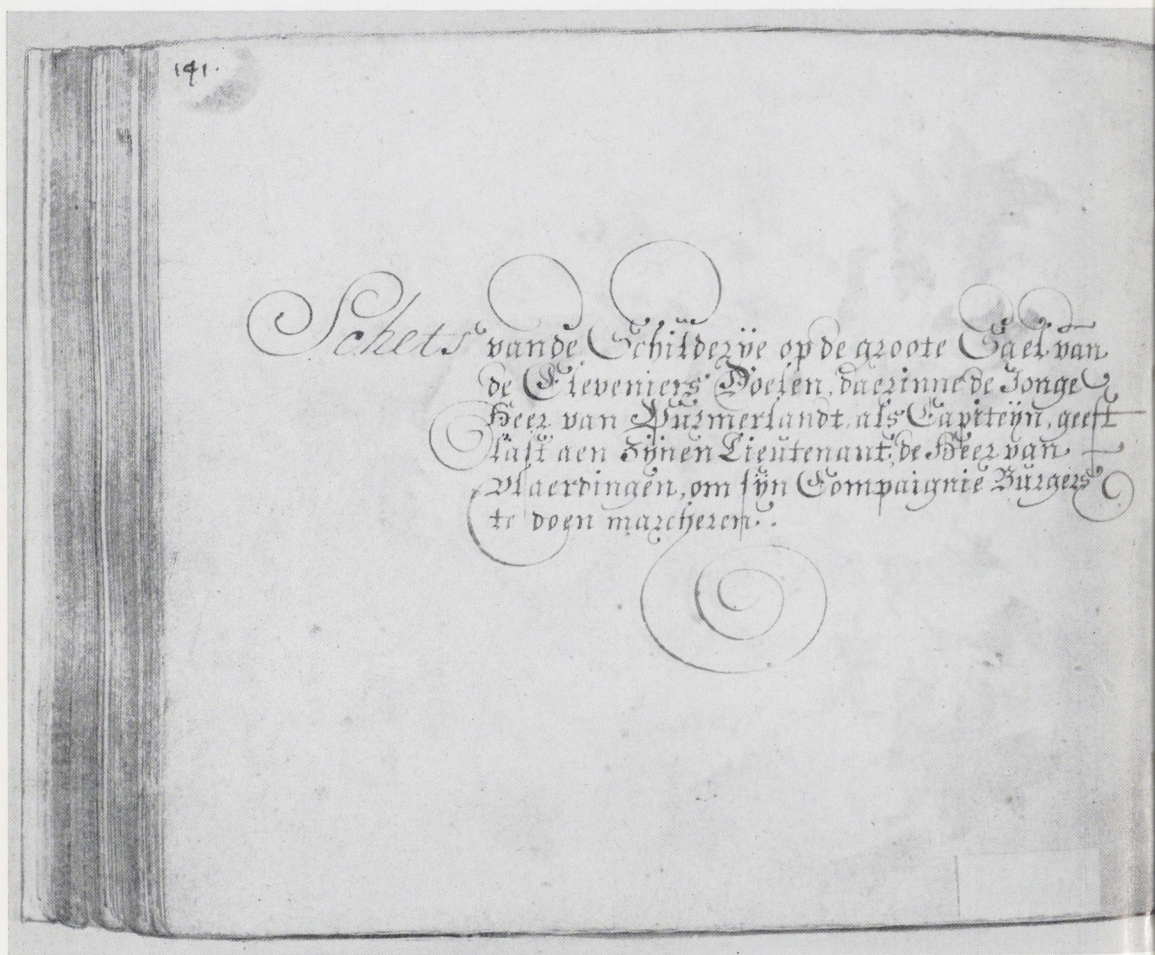 141.
Schets vande Schilderije op de groote Sael van
de Cleveniers Doelen, daerinne de Jonge
Heer van Purmerlandt, als Capiteijn, geeft
last aen zijnen Lieutenant, de Heer van
Vlaerdingen, om sijn Compaignie Burgers
te doen marcheren.